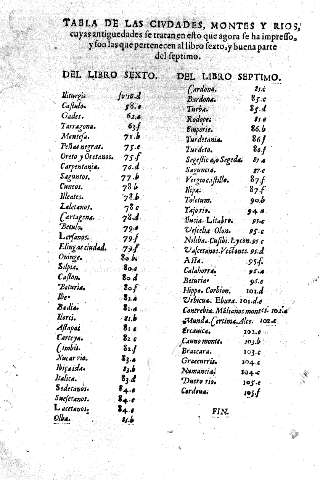 TABLA DE LAS CIVDADES, MONTES Y RIOS,
cuyas antiguedades se tratan en esto que agora se ha impresso,
y son las que pertenecen al libro sexto, y buena parte
del septimo.
DEL LIBRO SEXTO.
Iliturgis
Castulo. 58.e
Gades. 62.a
Tarragona. 63.f
Montesa 71.b
Peñas negras. 75.e
Oreto y Oretanos. 75.f
Carpentania. 76.d
Saguntos. 77.b
Cuneos. 78.b
Ilcates. 78.b
Laletanos. 78.c
Cartagena 78.d
Betulo. 79.a
Lersanos. 79.f
Elinga ciudad. 79.f
Oninge. 80.b
Silpia. 80.c
Caston. 80.d
Beturia. 80.f
Ibe. 82.a
Badia. 82.a
Ilorci. 81.b
Astapa.
Carteya. 82.c
Cimbis. 82.f
Nucaria. 83.a
Ibiça isla. 83.b
Italica. 83.d
Sedetanos. 84.e
Suessetanos. 84.e
Lacetanos. 84.e
Olba.
DEL LIBRO SEPTIMO.
Cardona.
Bardona. 85.c
Turba. 85.d
Rodope. 81.e
Emporie. 86.b
Turdetania 86.f
Turdeto. 86.f
Segestic a o Segeda.
Saguncia. 87.c
Vergio castillo. 87.f
Ilipa. 87.f
Toletum. 90.b
Tajo rio. 94.a
Ilucia. Litabro. 95.c
Vescelia Olon. 95.c
Noliba. Cusibi. Lycon. 95.c
Vascetanos. Vectones. 95.d
Asta. 95.f
Calahorra. 95.a
Beturia. 95.e
Hippo. Corbion. 101.d
Vrbicua. Ebura. 101.d.e
Contrebia. Malianos montes. 102.a
Munda. Certima. Alce. 102.a
Ercauica. 102.e
Cauno monte. 103.b
Braccara. 103.c
Graccurris. 104.c
Numancia. 104.c
Duero rio. 105.c
Cardona. 103.f
FIN.